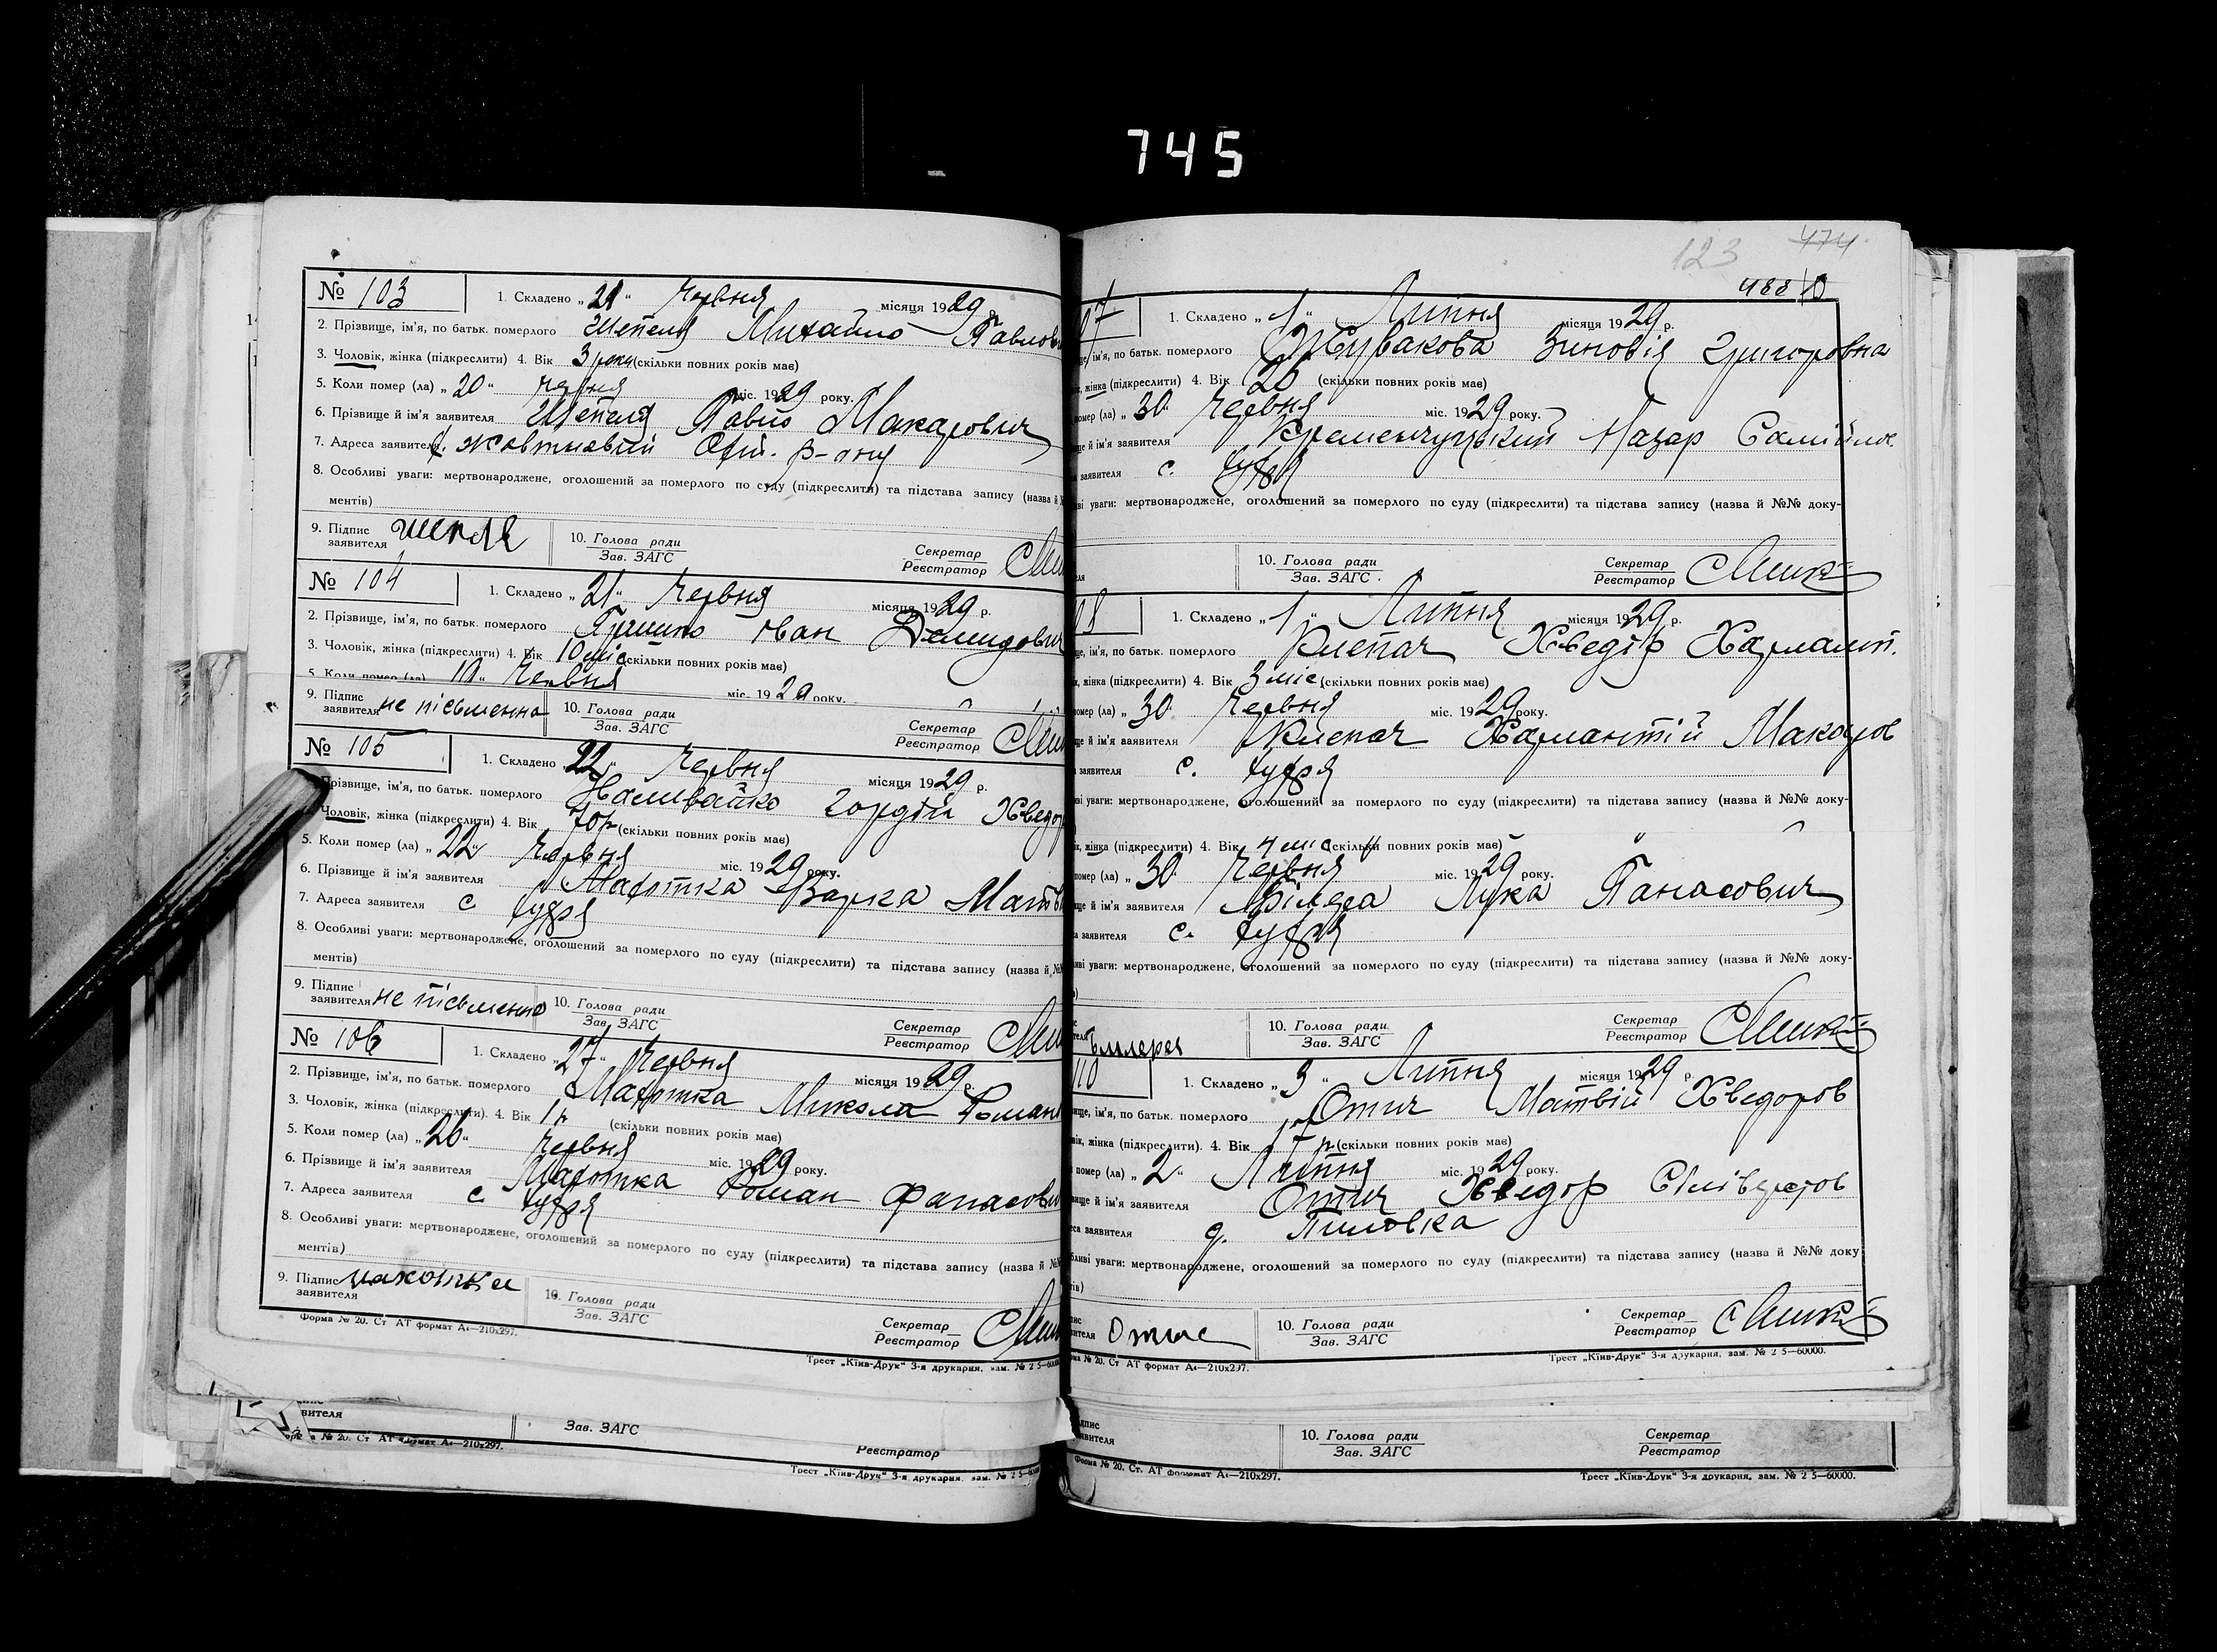 745
№ 103
1. Складено „21“ Червня місяця 1929 р.
2. Прізвище, ім'я, по батьк. померлого Шепеля Михайло Павлов
3. Чоловік, жінка (підкреслити) 4. Вік 3 роки (скільки повних років має)
5. Коли помер (ла) „20“ Червня міс. 1929 року.
6. Прізвище й ім'я заявителя Шепеля Павло Макарович
7. Адреса заявителя Жовтневий р-ну
8. Особливі уваги: мертвонароджене, оголошений за померлого по суду (підкреслити) та підстава запису (назва й
ментів)
9. Підпис заявителя шепеля 10. Голова ради Зав. ЗАГС Секретар Реєстратор
№ 104
1. Складено „21“ Червня місяця 1929 р.
2. Прізвище, ім'я, по батьк. померлого Іван Демидович
3. Чоловік, жінка (підкреслити) 4. Вік 10 міс (скільки повних років має)
5. Коли помер (ла) Червня міс. 1929 року.
9. Підпис заявителя не пісьменна 10. Голова ради Зав. ЗАГС Секретар Реєстратор
№ 105
1. Складено „22“ Червня місяця 1929 р.
Прізвище, ім'я, по батьк. померлого Наливайко Гордій Хведор
Чоловік, жінка (підкреслити) 4. Вік 70 р (скільки повних років має)
5. Коли помер (ла) „22“ Червня міс. 1929 року.
6. Прізвище й ім'я заявителя Махотка Варка Матв
7. Адреса заявителя с
8. Особливі уваги: мертвонароджене, оголошений за померлого по суду (підкреслити) та підстава запису (назва й
ментів)
9. Підпис заявителя не пісьменна 10. Голова ради Зав. ЗАГС Секретар Реєстратор
№ 106
1. Складено „27“ Червня місяця 1929 р.
2. Прізвище, ім'я, по батьк. померлого Махотка Микола Роман
3. Чоловік, жінка (підкреслити). 4. Вік 1 р (скільки повних років має)
5. Коли помер (ла) „26“ Червня міс. 1929 року.
6. Прізвище й ім'я заявителя Махотка Роман Фанасови
7. Адреса заявителя с.
8. Особливі уваги: мертвонароджене, оголошений за померлого по суду (підкреслити) та підстава запису (назва й
ментів)
9. Підпис заявителя махотка 10. Голова ради Зав. ЗАГС Секретар Реєстратор
Форма № 20. Ст АТ формат А4—210х297.
Трест „Київ-Друк“ 3-я друкарня, зам. № 2 5—6000
вителя
Зав. ЗАГС
Реєстратор
№ 20. Ст АТ формат А4—210х297.
Трест „Київ-Друк“ 3-я друкарня, зам. № 2 5—
123 474
488
7
1. Складено „1“ Липня місяця 1929 р.
ім'я, по батьк. померлого Жувакова Зиновія Григоровна
жінка (підкреслити) 4. Вік 26 (скільки повних років має)
помер (ла) „30“ Червня міс. 1929 року.
й ім'я заявителя Кременчуцький Назар Самійлов.
заявителя с.
уваги: мертвонароджене, оголошений за померлого по суду (підкреслити) та підстава запису (назва й №№ доку-
10. Голова ради Зав. ЗАГС Секретар Реєстратор
08
1. Складено „1“ Липня місяця 1929 р.
ім'я, по батьк. померлого Клепач Хведір Харламп.
жінка (підкреслити) 4. Вік 3 міс (скільки повних років має)
помер (ла) „30“ Червня міс. 1929 року.
й ім'я заявителя Клепач Харлантій Макаров
заявителя с.
уваги: мертвонароджене, оголошений за померлого по суду (підкреслити) та підстава запису (назва й №№ доку-
жінка (підкреслити) 4. Вік 4 міс (скільки повних років має)
помер (ла) „30“ Червня міс. 1929 року.
й ім'я заявителя Лука Панасович
заявителя с.
уваги: мертвонароджене, оголошений за померлого по суду (підкреслити) та підстава запису (назва й №№ доку-
10. Голова ради Зав. ЗАГС Секретар Реєстратор
110
1. Складено „3“ Липня місяця 1929 р.
ім'я, по батьк. померлого Отич Матвій Хведоров
жінка (підкреслити). 4. Вік (скільки повних років має)
помер (ла) „2“ Липня міс. 1929 року.
й ім'я заявителя Отич Хведор
заявителя
уваги: мертвонароджене, оголошений за померлого по суду (підкреслити) та підстава запису (назва й №№ доку
10. Голова ради Зав. ЗАГС Секретар Реєстратор
№ 20. Ст АТ формат А4—210х297.
Трест „Київ-Друк“ 3-я друкарня, зам. № 2 5—60000.
10. Голова ради Зав. ЗАГС Секретар Реєстратор
Форма № 20. Ст. АТ формат А4—210х297.
Трест „Київ-Друк“ 3-я друкарня, зам. № 2 5—60000.